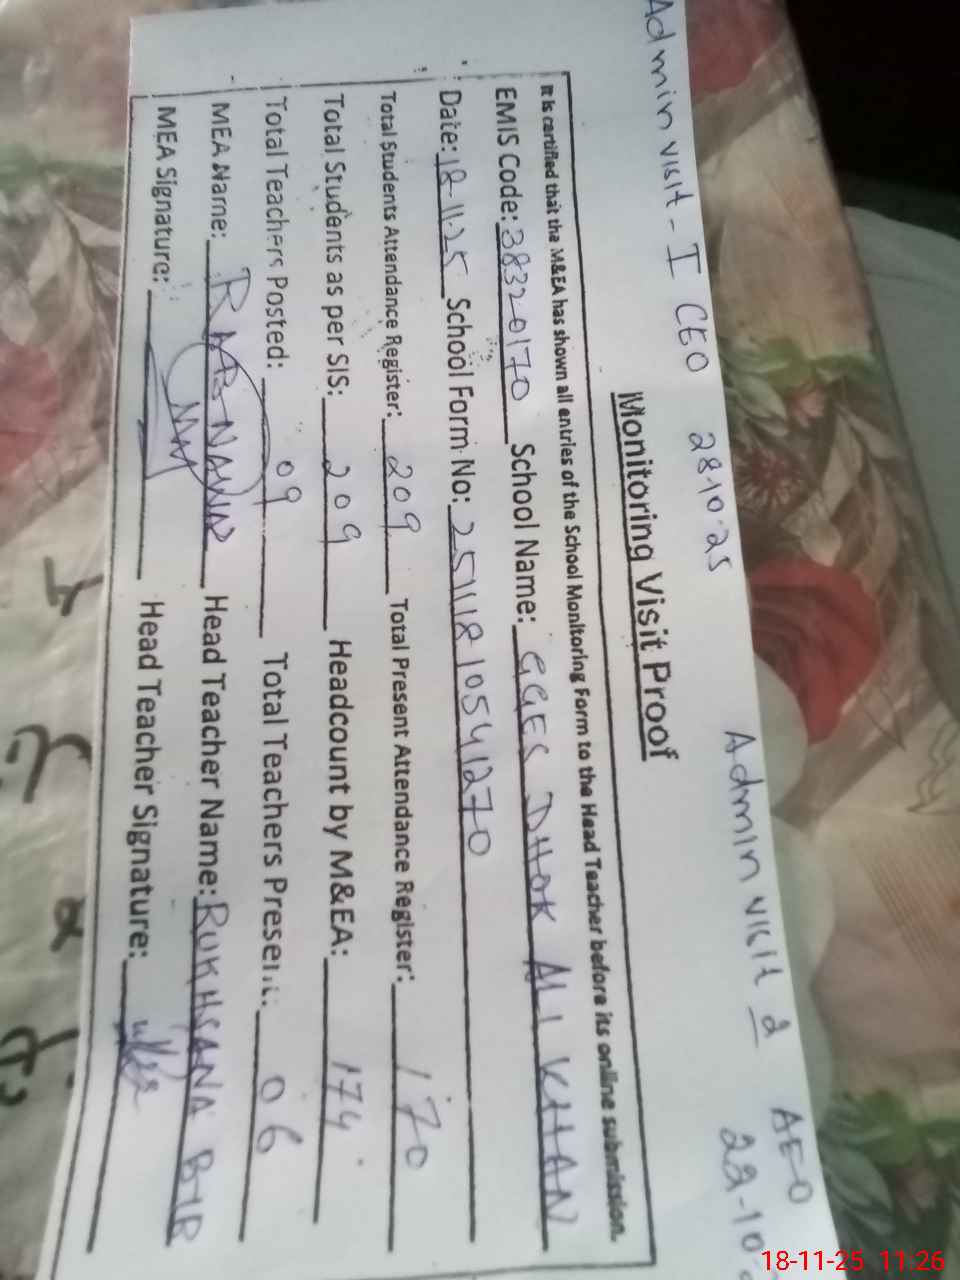 Admin visit - I CEO 28-10-25
Admin visit 2 AEO 22-10-
Monitoring Visit Proof
It is certified that the M&EA has shown all entries of the School Monitoring Form to the Head Teacher before its online submission.
EMIS Code: 38320170 School Name: GGES DHOK ALI KHAN
Date: 18-11-25 School Form No: 25111810541270
Total Students Attendance Register: 209 Total Present Attendance Register: 170
Total Students as per SIS: 209 Headcount by M&EA: 174
Total Teachers Posted: 09 Total Teachers Present: 06
MEA Name: RAB NAWAZ Head Teacher Name: RUKHSANA BIBI
MEA Signature: Head Teacher Signature:
18-11-25 11:26